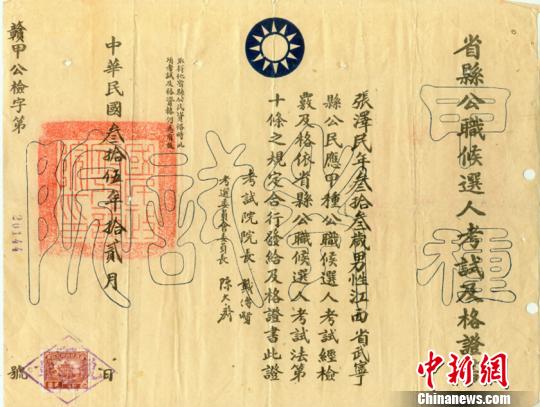 省縣公職候選人考試及格證
甲種
張澤民年叁拾叁歲男性江西省武寧
縣公民應甲種公職候選人考試經檢
覈及格依省縣公職候選人考試法第
十條之規定合行發給及格證書此證
考試院院長 戴傳賢
考選委員會委員長 陳大齊
中華民國叁拾伍年拾貳月
日
贛甲公檢字第
20144
號
考試院
中新网
Chinanews.com